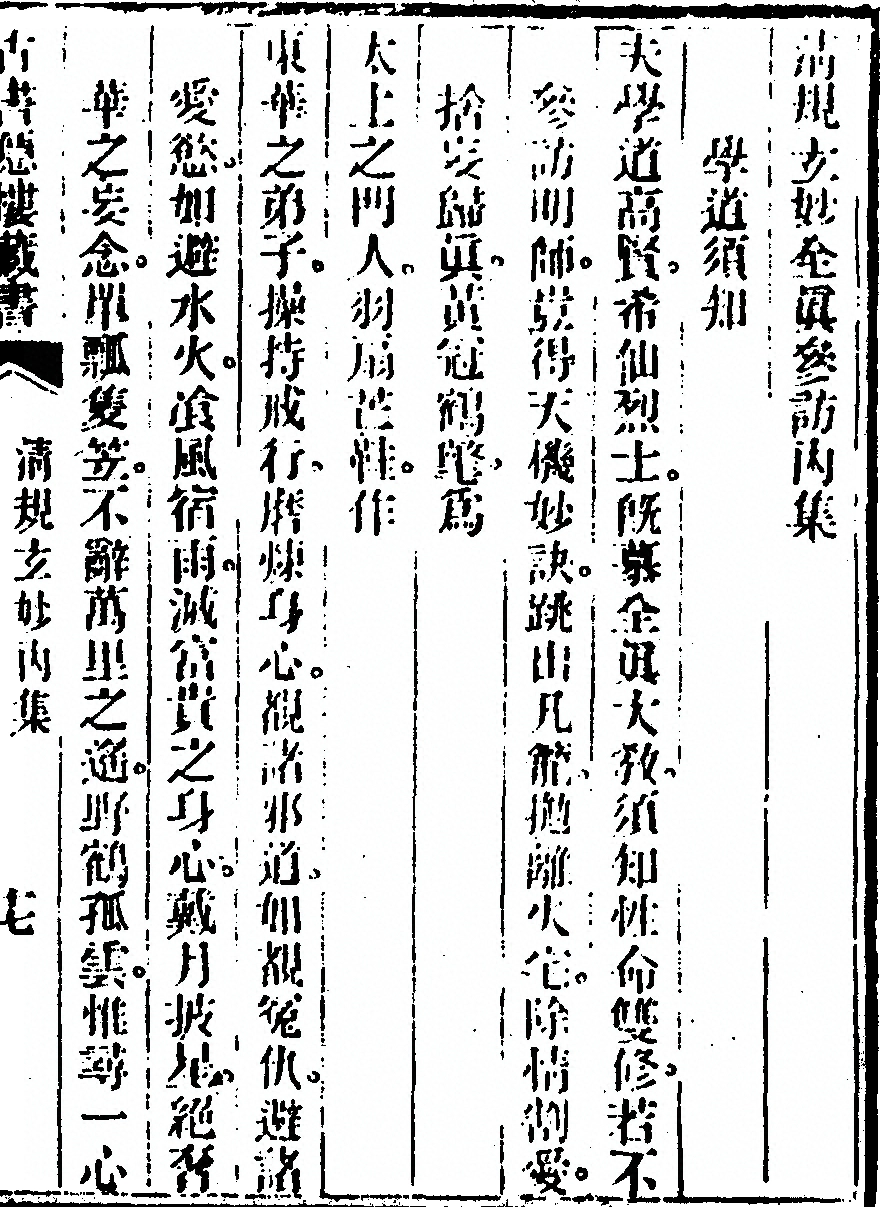 清規玄妙全眞參訪內集
學道須知
夫學道高賢。希仙烈士。旣慕全眞大教。須知性命雙修。若不
參訪明師。豈得天機妙訣。跳出凡籠。拋離火宅。除情割愛。
捨妄歸眞。黃冠鶴氅。爲
太上之門人。羽扇芒鞋。作
東華之弟子。操持戒行。磨煉身心。視諸邪道。如視冤仇。避諸
愛慾。如避水火。飡風宿雨。滅富貴之身心。戴月披星。絕奢
華之妄念。單瓢隻笠。不辭萬里之遙。野鶴孤雲。惟尋一心
古書隱樓藏書
清規玄妙內集
七